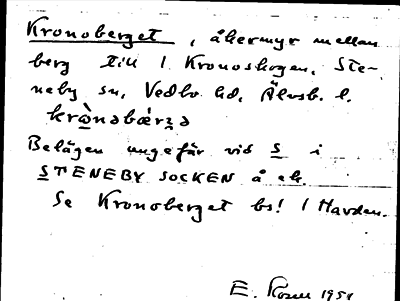 Kronoberget, åkermyr mellan
berg till 1 Kronoskogen, Ste-
neby sn, Vedbo hd, Älvsb. l.
krò̲nəbǽrʒə
Belägen ungefär vid S i
STENEBY SOCKEN å ek.
Se Kronoberget bs! 1 Harden.
E. Rosen 1951